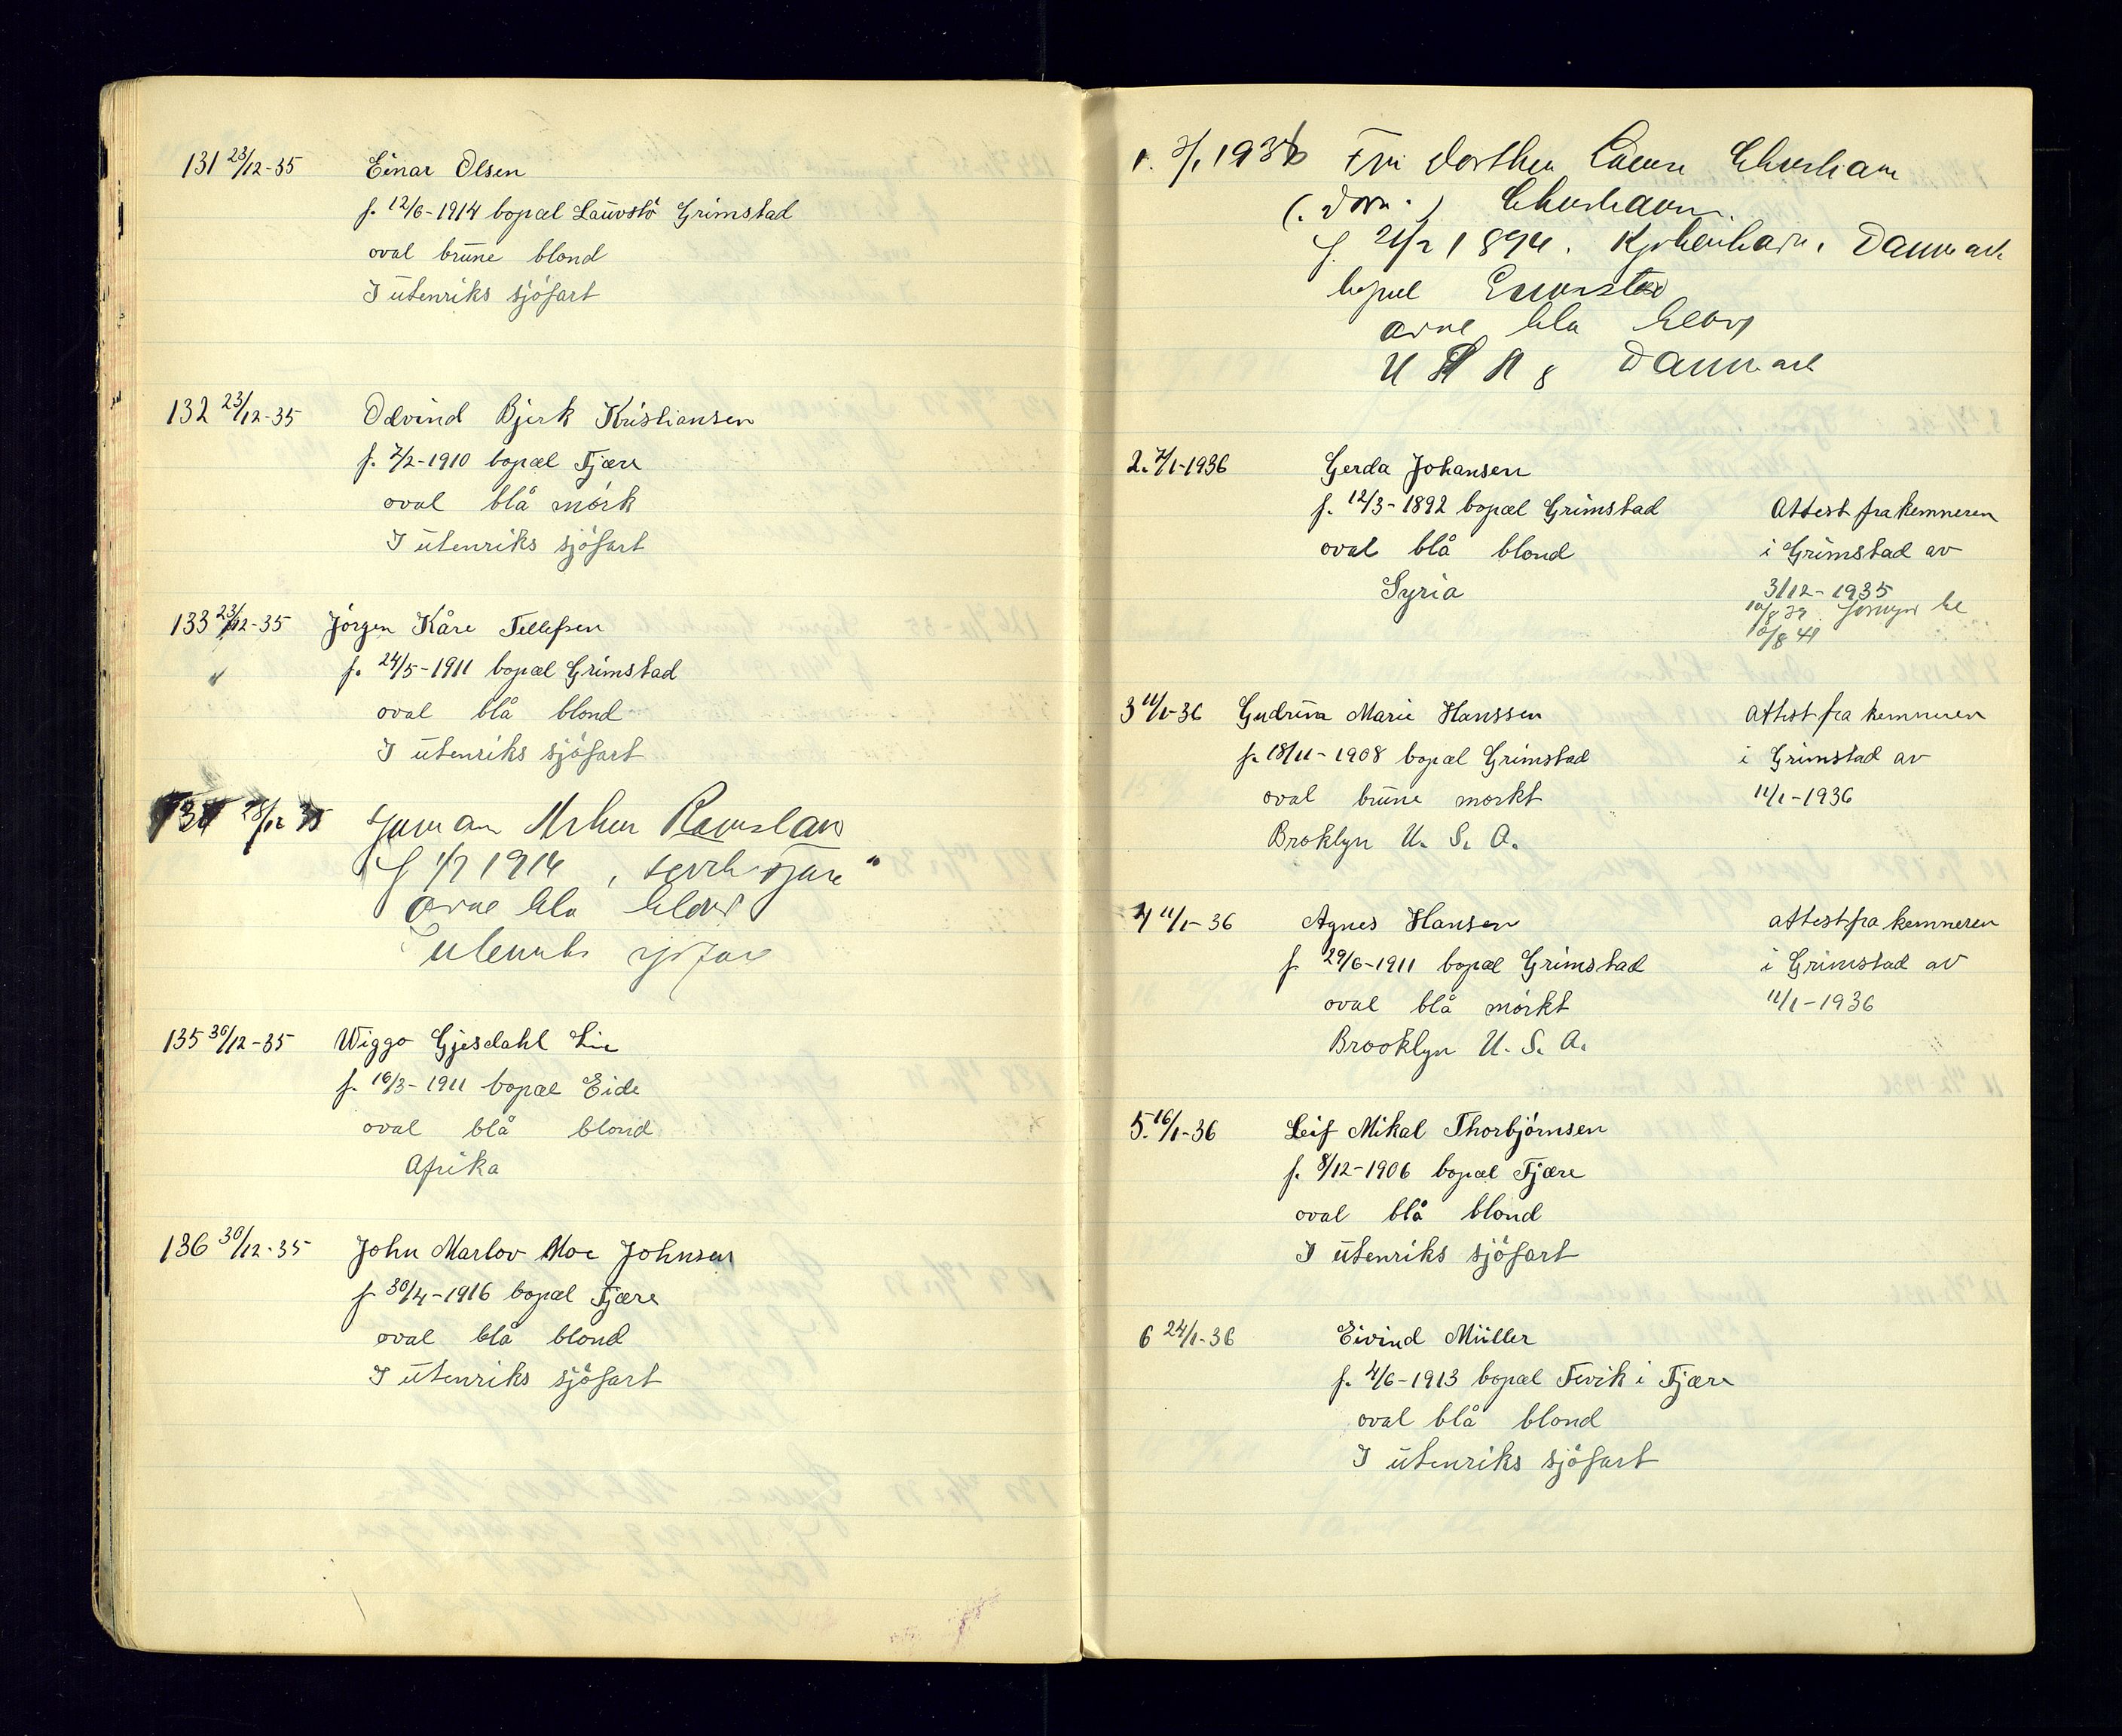 131 23/12-35 Einar Olsen
f. 12/6-1914 bopæl Lauvstö Grimstad
oval brune blond
I utenriks sjöfart
132 23/12-35 Odvind Bjerk Kristiansen
f. 7/2-1910 bopæl Fjære
oval blå mörk
I utenriks sjöfart
133 23/12-35 Jörgen Kåre Tellefsen
f. 24/5-1911 bopæl Grimstad
oval blå blond
I utenriks sjöfart
134 28/12 35
f 1/7 1914
ovale bla blond
I utenriks
135 30/12-35 Wiggo Gjesdahl Lie
f. 16/3-1911 bopæl Eide
oval blå blond
Afrika
136 30/12-35 John Marlov Moe Johnsen
f 30/4-1916 bopæl Fjære
oval blå blond
I utenriks sjöfart
1. 3/1 1936 Fru Dorthea
f 21/2 1894. Kjøbenhavn, Danmark
bopæl Grimstad
ovale bla blond
U S A & Danmark
2. 7/1-1936 Gerda Johansen
f. 12/3-1892 bopæl Grimstad Attest fra kemneren
oval blå blond i Grimstad av
Syria 31/12-1935
10/8 39
10/8 41
3 11/1-36 Gudrun Marie Hanssen Attest fra kemneren
f. 18/11-1908 bopæl Grimstad i Grimstad av
oval brune mörkt 11/1-1936
Broklyn U. S. A.
4 11/1-36 Agnes Hansen attest fra kemneren
f 29/6-1911 bopæl Grimstad i Grimstad av
oval blå mörkt 11/1-1936
Brooklyn U. S. A.
5. 16/1-36 Leif Mikal Thorbjörnsen
f. 8/12-1906 bopæl Fjære
oval blå blond
I utenriks sjöfart
6 24/1-36 Eivind Müller
f. 4/6-1913 bopæl Fevik i Fjære
oval blå blond
I utenriks sjöfart